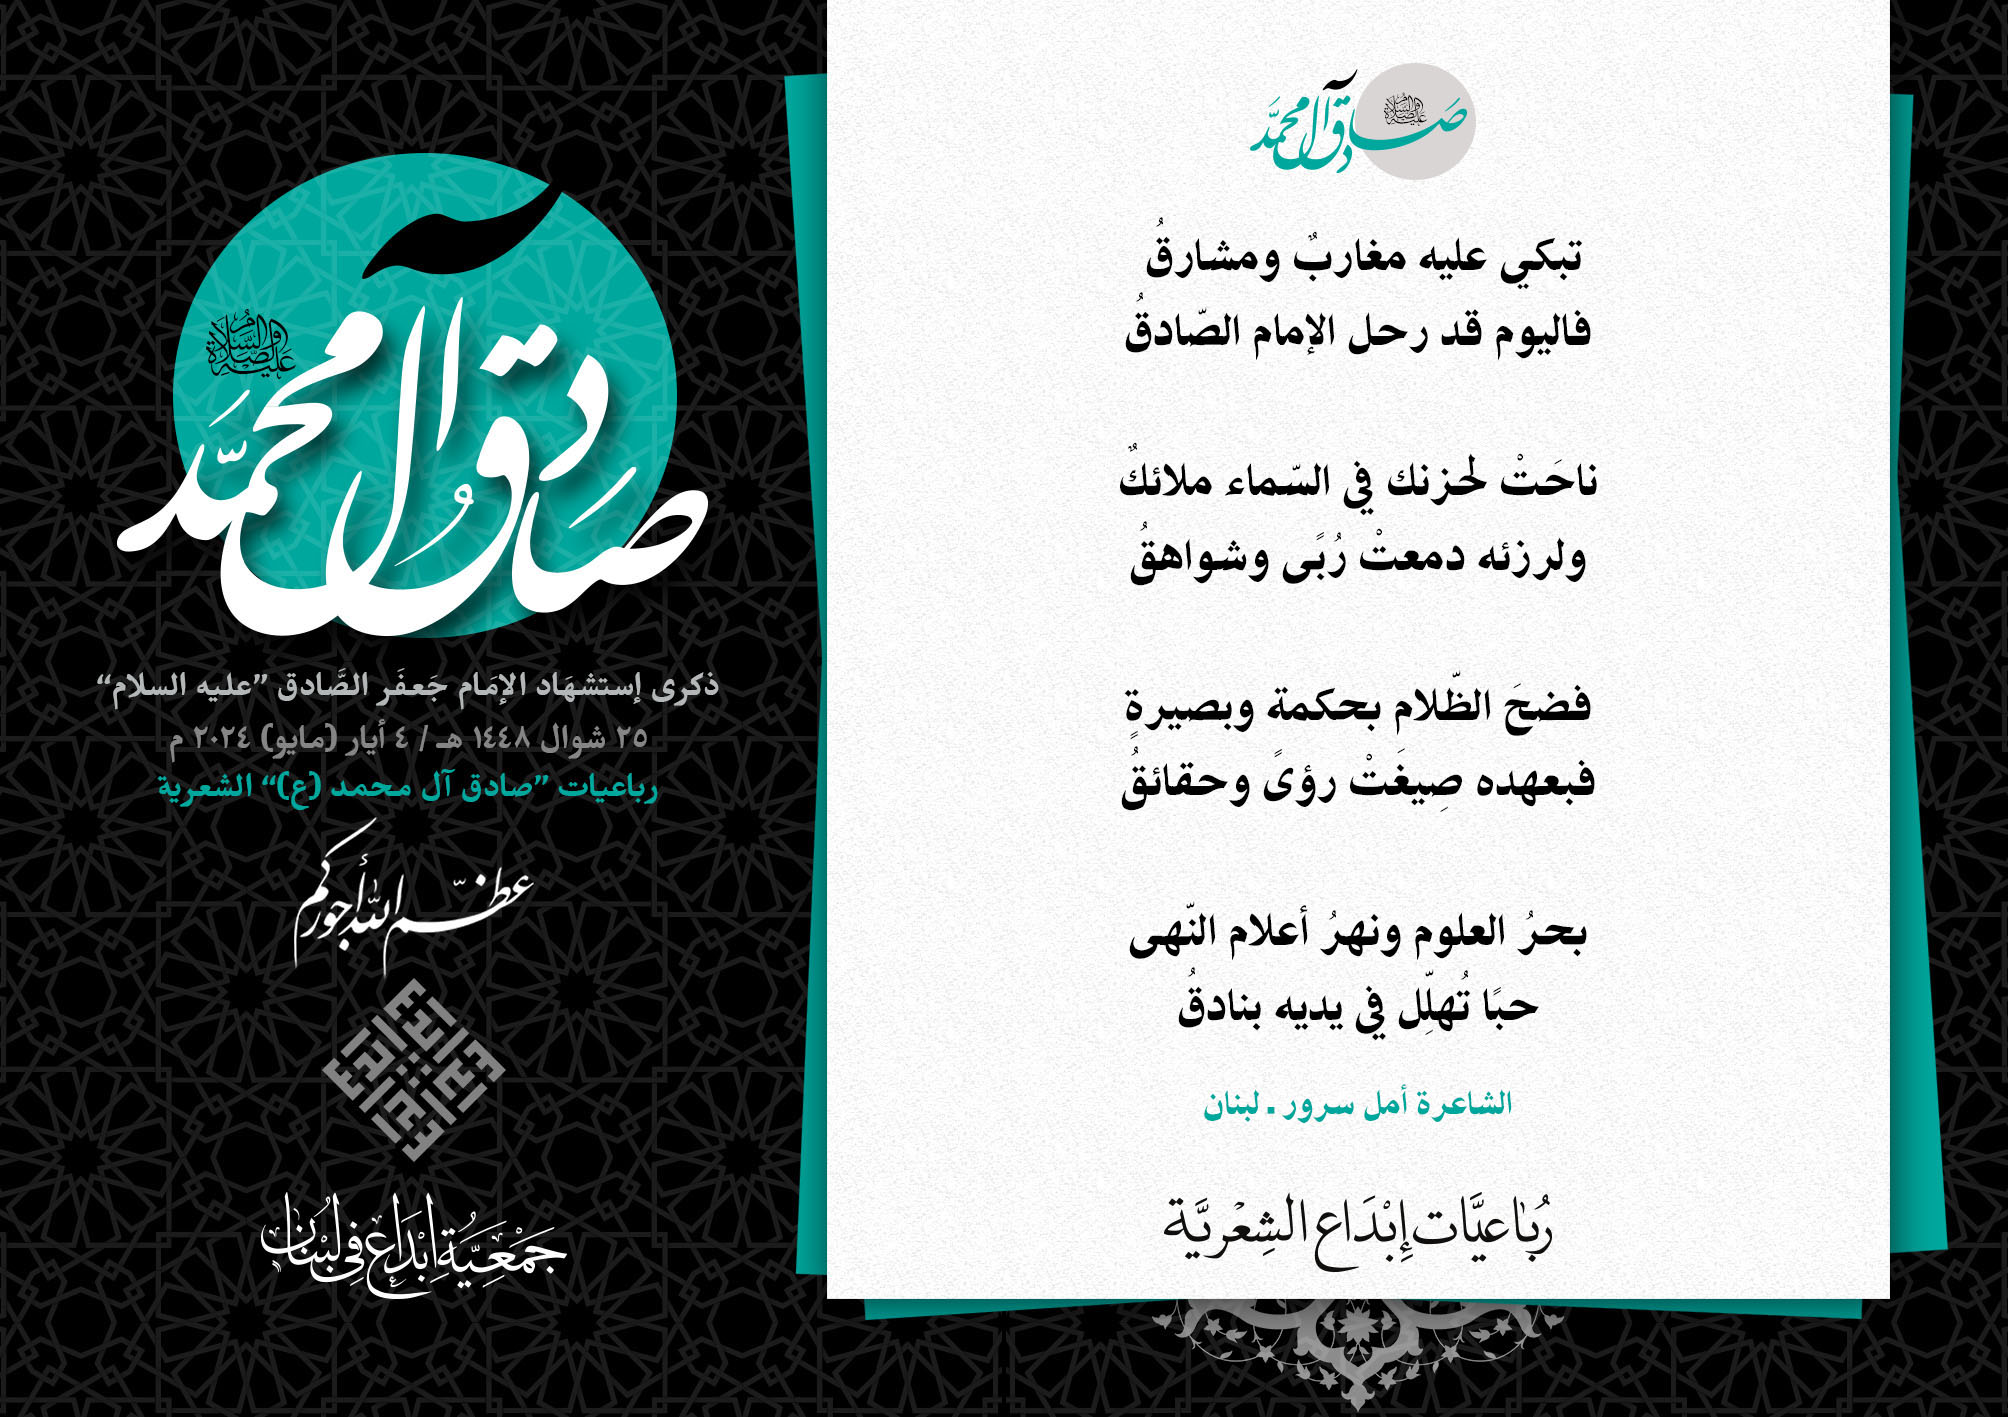 صادق آل محمد
عليه الصلاة والسلام
ذكرى إستشهَاد الإمَام جَعفَر الصَّادق ”عليه السلام“
٢٥ شوال ١٤٤٨ هـ / ٤ أيار (مايو) ٢٠٢٤ م
رباعيات ”صادق آل محمد (ع)“ الشعرية
عظّم الله أجوركم
جَمْعِيَّةُ إِبْدَاعٍ فِي لُبْنَانَ
صادق آل محمد
عليه الصلاة والسلام
تبكي عليه مغاربٌ ومشارقُ
فاليوم قد رحل الإمام الصّادقُ
ناحَتْ لحزنك في السّماء ملائكٌ
ولرزئه دمعتْ رُبًى وشواهقُ
فضحَ الظّلام بحكمة وبصيرةٍ
فبعهده صِيغَتْ رؤىً وحقائقُ
بحرُ العلوم ونهرُ أعلام النّهى
حبًا تُهلِّل في يديه بنادقُ
الشاعرة أمل سرور ـ لبنان
رُبَاعيَّات إِبْدَاع الشِعْريَّة